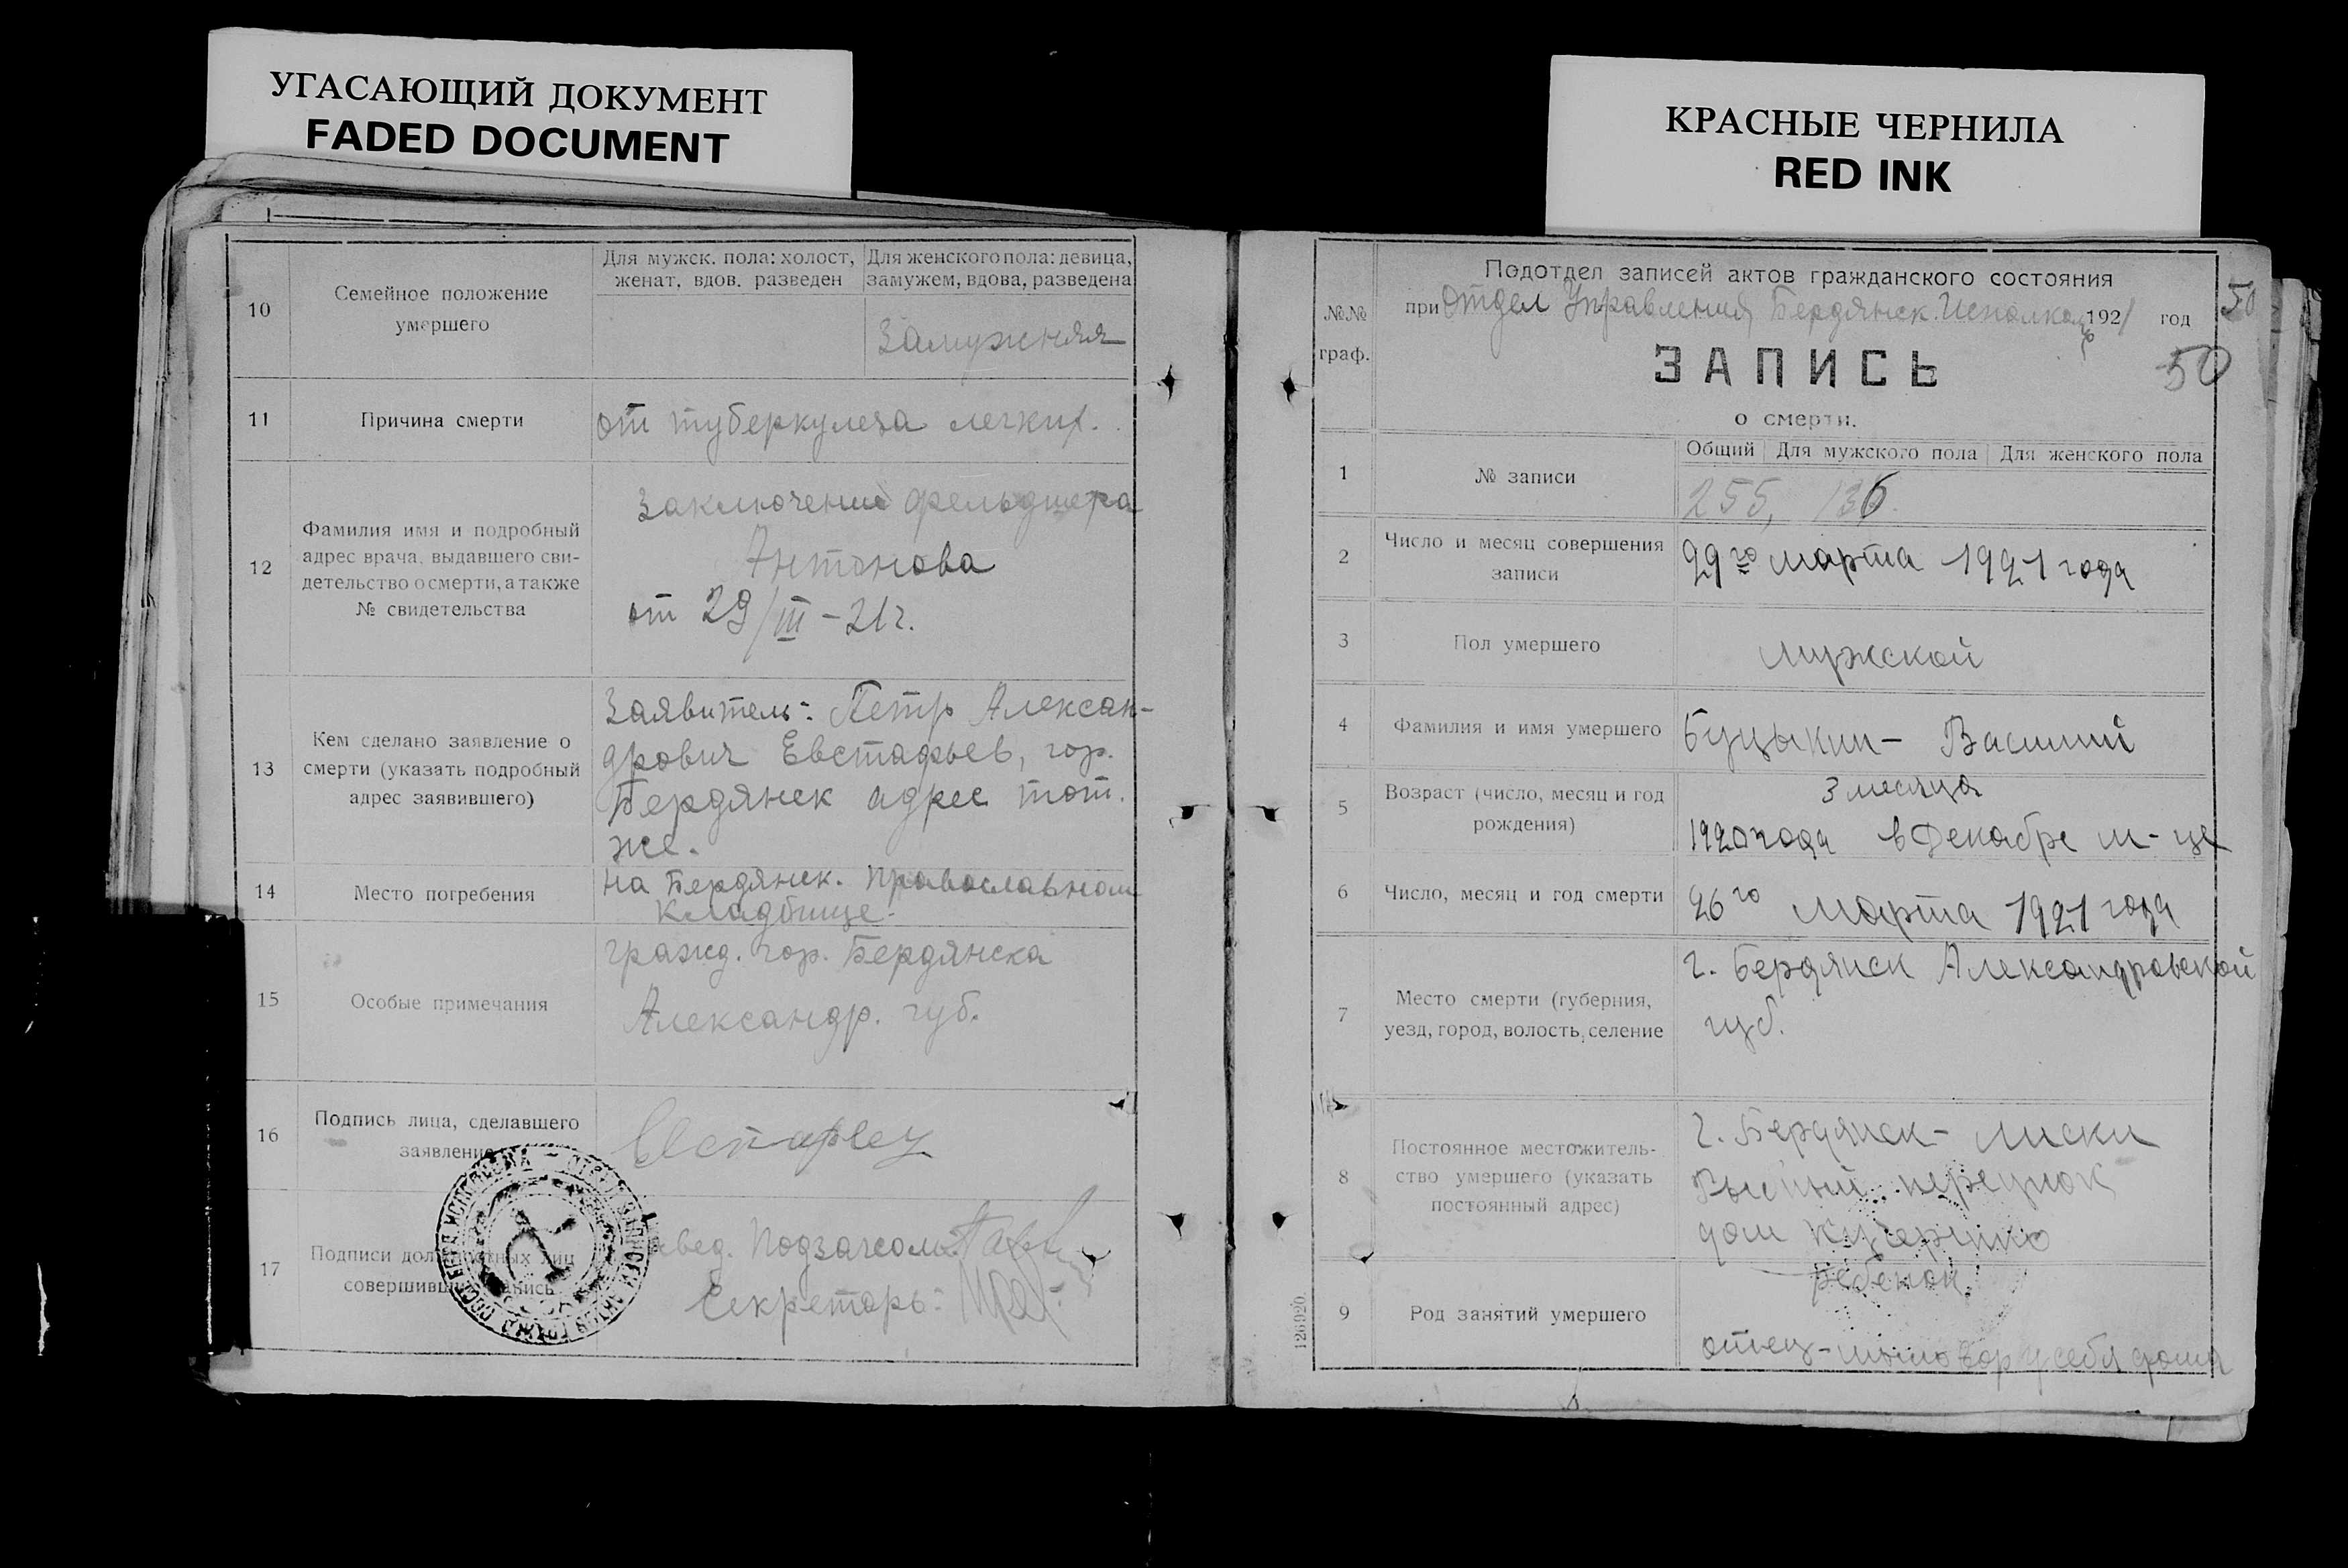 УГАСАЮЩИЙ ДОКУМЕНТ
FADED DOCUMENT
10
Семейное положение
умершего
Для мужск. пола: холост,
женат, вдов, разведен
Для женского пола: девица,
замужем, вдова, разведена
Замужняя
11
Причина смерти
от туберкулеза легких.
12
Фамилия имя и подробный
адрес врача, выдавшего сви-
детельство о смерти, а также
№ свидетельства
Заключение фельдшера
Антонова
от 29/III-21 г.
13
Кем сделано заявление о
смерти (указать подробный
адрес заявившего)
Заявитель: Петр Алексан-
дрович Евстафьев, гор.
Бердянск адрес тот.
же.
14
Место погребения
на Бердянск. православном
кладбище.
15
Особые примечания
гражд. гор. Бердянска
Александр. губ.
16
Подпись лица, сделавшего
заявление
17
Подписи должностных лиц
совершивших запись
Завед. Подзагсом:
Секретарь:
КРАСНЫЕ ЧЕРНИЛА
RED INK
50
№№
граф.
Подотдел записей актов гражданского состояния
при Отдел Управления Бердянск. Исполкома 1921 год
50
ЗАПИСЬ
о смерти.
1
№ записи
Общий Для мужского пола Для женского пола
255, 136.
2
Число и месяц совершения
записи
29го марта 1921 года
3
Пол умершего
мужской
4
Фамилия и имя умершего
Буцыкин - Василий
5
Возраст (число, месяц и год
рождения)
3 месяца
1920 года в Декабре м-це
6
Число, месяц и год смерти
26го Марта 1921 года
7
Место смерти (губерния,
уезд, город, волость, селение
г. Бердянск Александровской
губ.
8
Постоянное местожитель-
ство умершего (указать
постоянный адрес)
г. Бердянск - Лиски
переулок
дом
9
Род занятий умершего
ребенок.
отец - у себя дома
126920